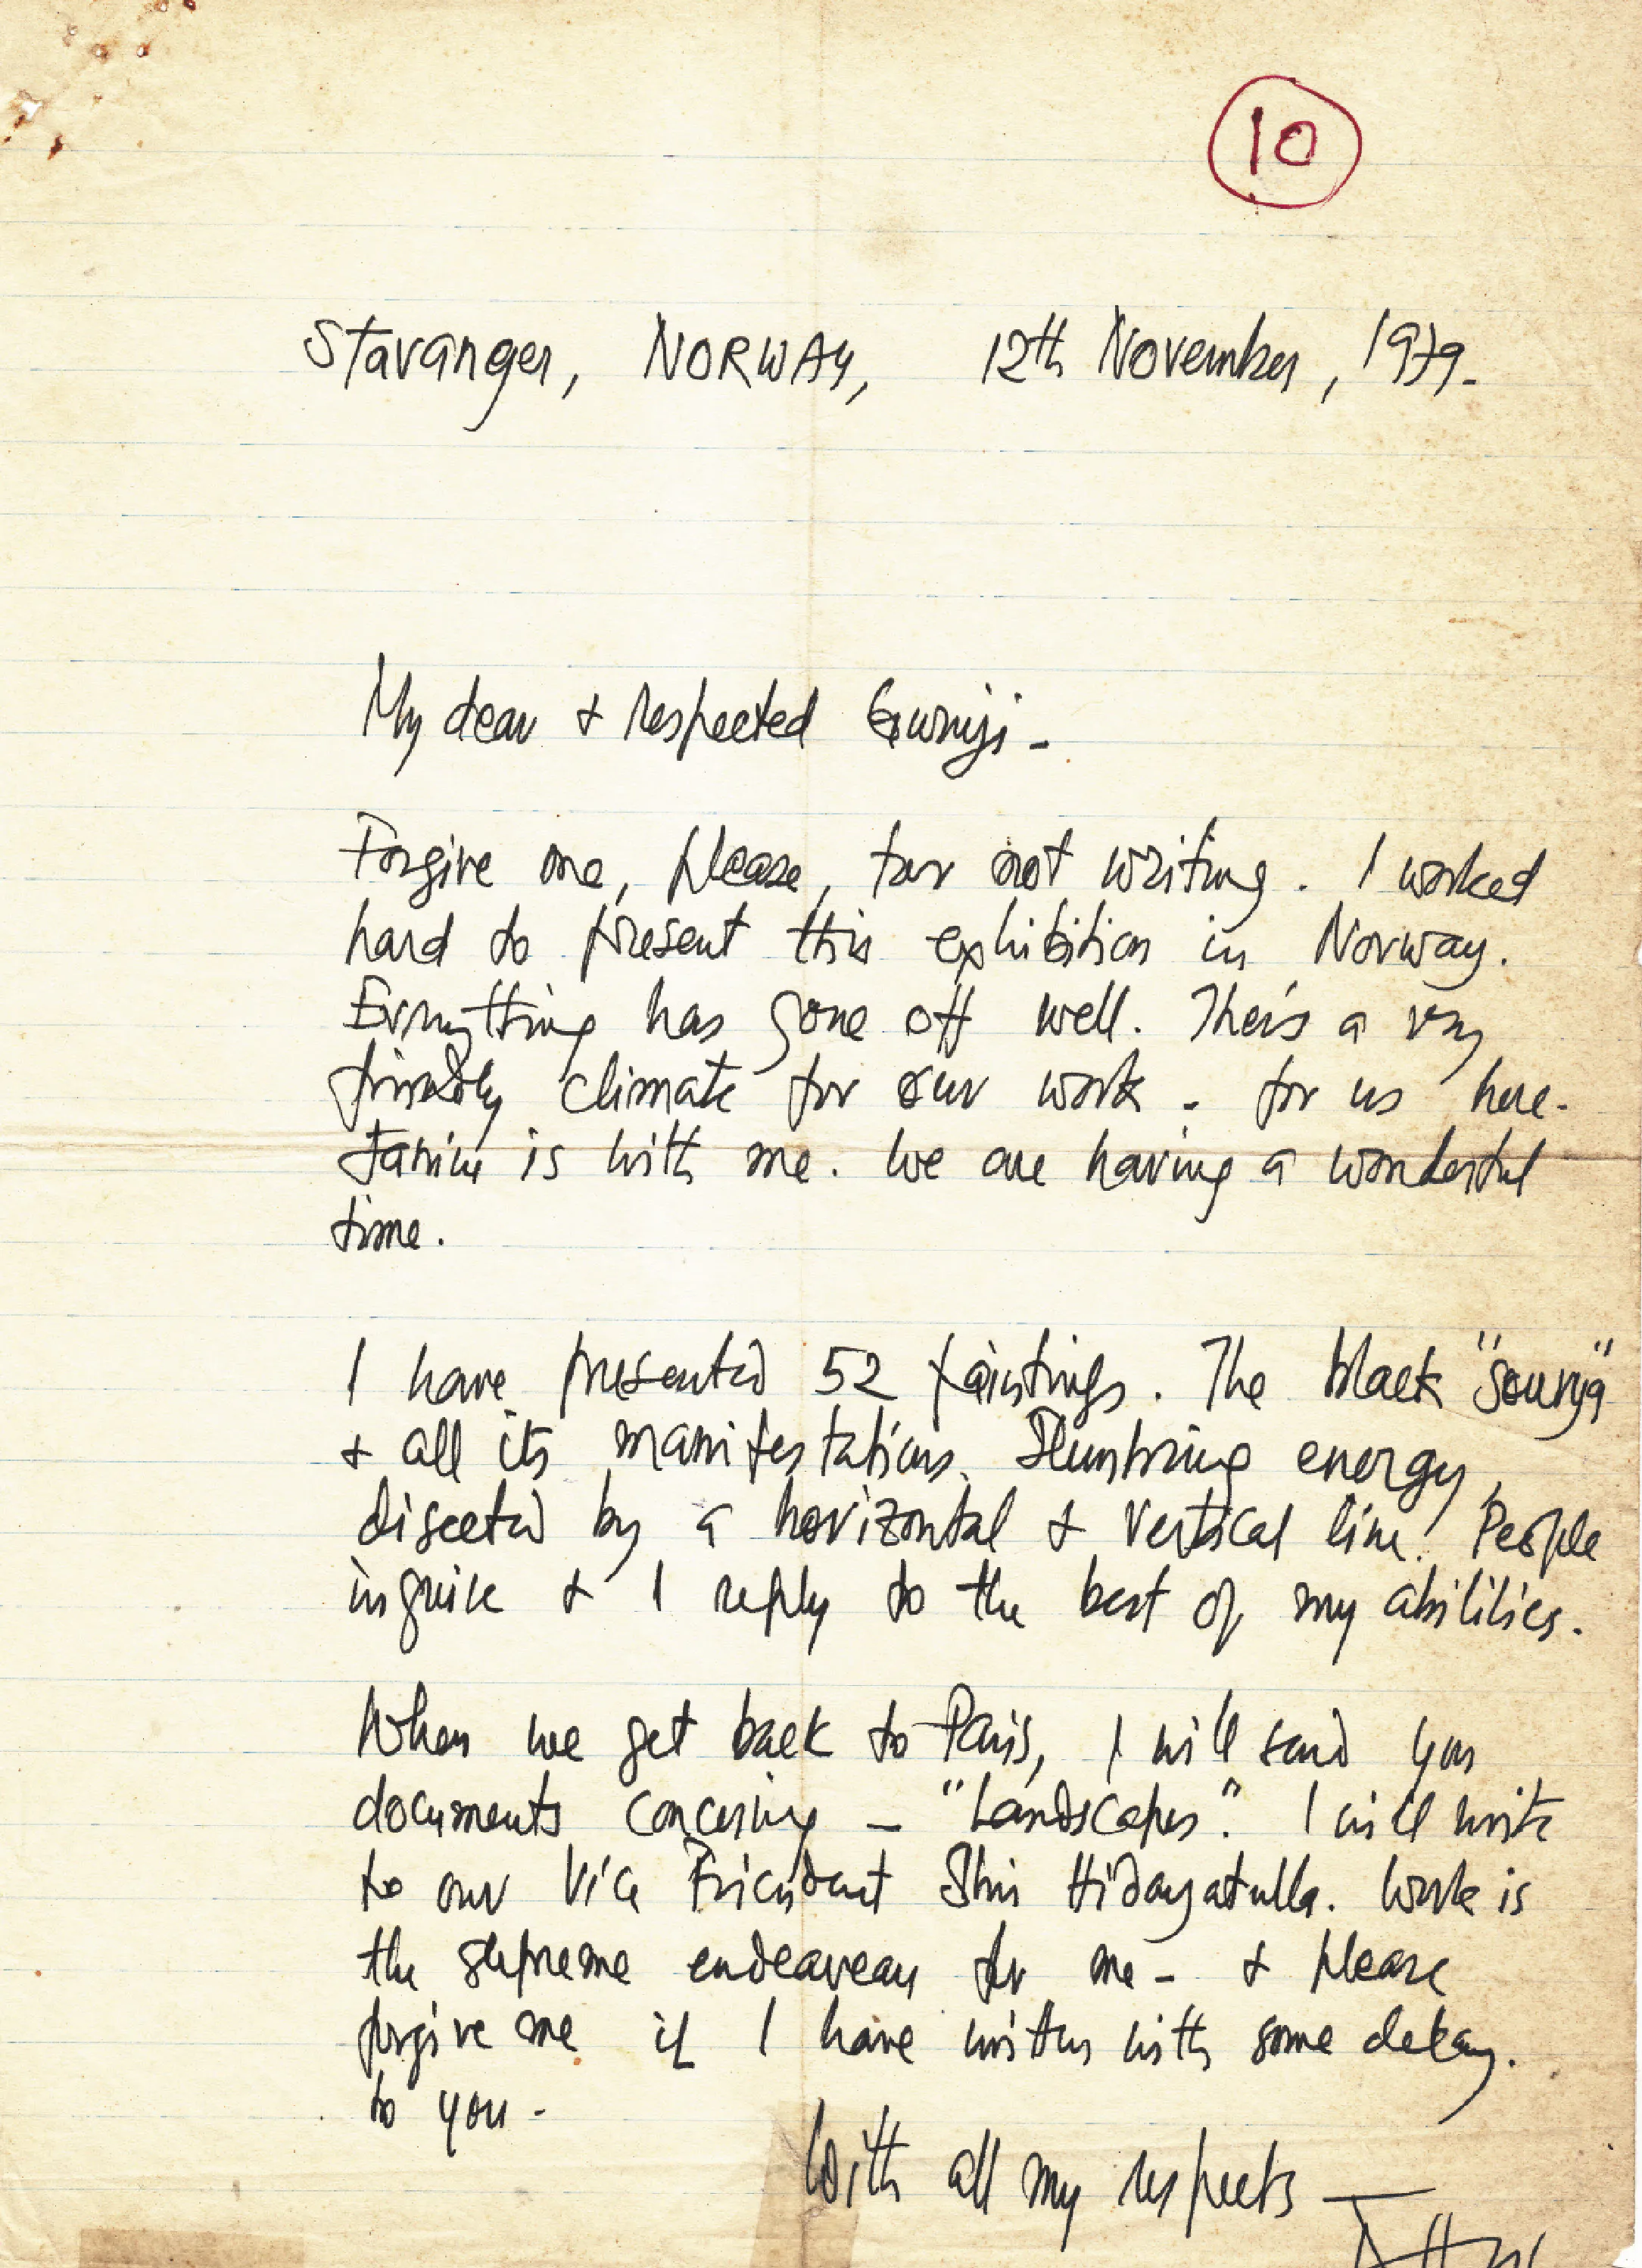 10
Stavanger, NORWAY, 12th November, 1979.
My dear & respected Guruji -
Forgive me, please, for not writing. I worked
hard to present this exhibition in Norway.
Everything has gone off well. There's a very
friendly climate for our work - for us here.
Janine is with me. We are having a wonderful
time.
I have presented 52 paintings. The black "Sourya"
& all its manifestations. Slumbring energy,
disected by a horizontal & vertical line! People
inquire & I reply to the best of my abilities.
When we get back to Paris, I will send you
documents concerning - "Landscapes". I will write
to our Vice President Shri Hidayatulla. Work is
the supreme endeavour for me - & please
forgive me if I have written with some delay.
to you -
With all my respects —